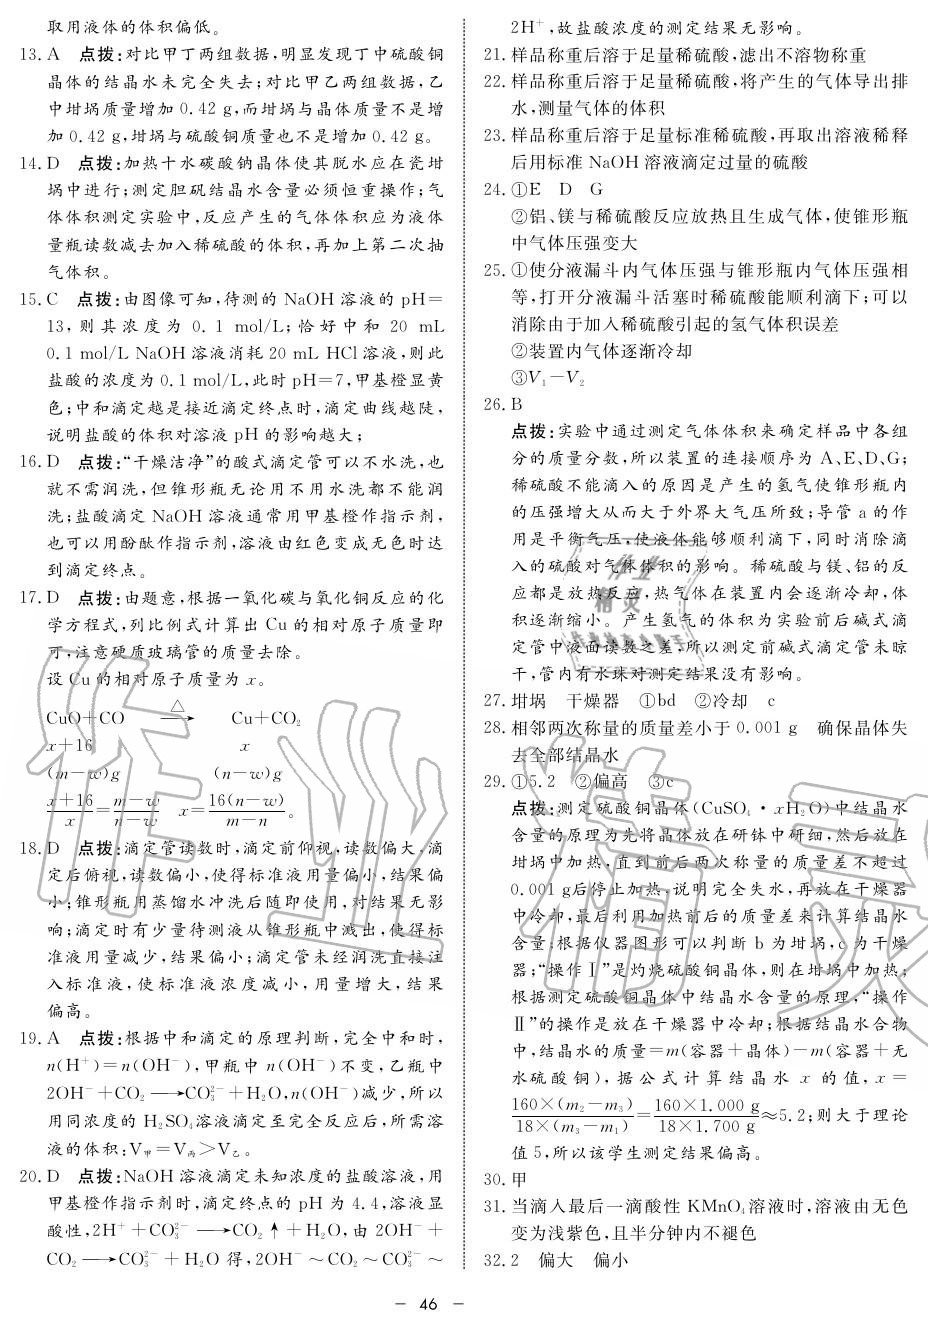 取用液体的体积偏低。
13. A　点拨:对比甲丁两组数据,明显发现丁中硫酸铜
晶体的结晶水未完全失去;对比甲乙两组数据,乙
中坩埚质量增加 0.42 g,而坩埚与晶体质量不是增
加 0.42 g,坩埚与硫酸铜质量也不是增加 0.42 g。
14. D　点拨:加热十水碳酸钠晶体使其脱水应在瓷坩
埚中进行;测定胆矾结晶水含量必须恒重操作;气
体体积测定实验中,反应产生的气体体积应为液体
量瓶读数减去加入稀硫酸的体积,再加上第二次抽
气体积。
15. C　点拨:由图像可知,待测的 NaOH 溶液的 pH=
13,则其浓度为 0.1 mol/L;恰好中和 20 mL
0.1 mol/L NaOH 溶液消耗 20 mL HCl 溶液,则此
盐酸的浓度为 0.1 mol/L,此时 pH=7,甲基橙显黄
色;中和滴定越是接近滴定终点时,滴定曲线越陡,
说明盐酸的体积对溶液 pH 的影响越大;
16. D　点拨:“干燥洁净”的酸式滴定管可以不水洗,也
就不需润洗,但锥形瓶无论用不用水洗都不能润
洗;盐酸滴定 NaOH 溶液通常用甲基橙作指示剂,
也可以用酚酞作指示剂,溶液由红色变成无色时达
到滴定终点。
17. D　点拨:由题意,根据一氧化碳与氧化铜反应的化
学方程式,列比例式计算出 Cu 的相对原子质量即
可,注意硬质玻璃管的质量去除。
设 Cu 的相对原子质量为 x。
CuO+CO —△→ Cu+CO₂
x+16　x
(m−w)g　(n−w)g
(x+16)/x=(m−w)/(n−w)　x=16(n−w)/(m−n)。
18. D　点拨:滴定管读数时,滴定前仰视,读数偏大,滴
定后俯视,读数偏小,使得标准液用量偏小,结果偏
小;锥形瓶用蒸馏水冲洗后随即使用,对结果无影
响;滴定时有少量待测液从锥形瓶中溅出,使得标
准液用量减少,结果偏小;滴定管未经润洗直接注
入标准液,使标准液浓度减小,用量增大,结果
偏高。
19. A　点拨:根据中和滴定的原理判断,完全中和时,
n(H⁺)=n(OH⁻),甲瓶中 n(OH⁻)不变,乙瓶中
2OH⁻+CO₂ —→CO₃²⁻+H₂O,n(OH⁻)减少,所以
用同浓度的 H₂SO₄溶液滴定至完全反应后,所需溶
液的体积:V甲=V丙>V乙。
20. D　点拨:NaOH 溶液滴定未知浓度的盐酸溶液,用
甲基橙作指示剂时,滴定终点的 pH 为 4.4,溶液显
酸性,2H⁺+CO₃²⁻ —→CO₂↑+H₂O,由 2OH⁻+
CO₂ —→CO₃²⁻+H₂O 得,2OH⁻～CO₂～CO₃²⁻～
2H⁺,故盐酸浓度的测定结果无影响。
21. 样品称重后溶于足量稀硫酸,滤出不溶物称重
22. 样品称重后溶于足量稀硫酸,将产生的气体导出排
水,测量气体的体积
23. 样品称重后溶于足量标准稀硫酸,再取出溶液稀释
后用标准 NaOH 溶液滴定过量的硫酸
24. ①E　D　G
②铝、镁与稀硫酸反应放热且生成气体,使锥形瓶
中气体压强变大
25. ①使分液漏斗内气体压强与锥形瓶内气体压强相
等,打开分液漏斗活塞时稀硫酸能顺利滴下;可以
消除由于加入稀硫酸引起的氢气体积误差
②装置内气体逐渐冷却
③V₁−V₂
26. B
点拨:实验中通过测定气体体积来确定样品中各组
分的质量分数,所以装置的连接顺序为 A、E、D、G;
稀硫酸不能滴入的原因是产生的氢气使锥形瓶内
的压强增大从而大于外界大气压所致;导管 a 的作
用是平衡气压,使液体能够顺利滴下,同时消除滴
入的硫酸对气体体积的影响。稀硫酸与镁、铝的反
应都是放热反应,热气体在装置内会逐渐冷却,体
积逐渐缩小。产生氢气的体积为实验前后碱式滴
定管中液面读数之差,所以测定前碱式滴定管未晾
干,管内有水珠对测定结果没有影响。
27. 坩埚　干燥器　①bd　②冷却　c
28. 相邻两次称量的质量差小于 0.001 g　确保晶体失
去全部结晶水
29. ①5.2　②偏高　③c
点拨:测定硫酸铜晶体(CuSO₄·xH₂O)中结晶水
含量的原理为先将晶体放在研钵中研细,然后放在
坩埚中加热,直到前后两次称量的质量差不超过
0.001 g后停止加热,说明完全失水,再放在干燥器
中冷却,最后利用加热前后的质量差来计算结晶水
含量;根据仪器图形可以判断 b 为坩埚,c 为干燥
器;“操作Ⅰ”是灼烧硫酸铜晶体,则在坩埚中加热;
根据测定硫酸铜晶体中结晶水含量的原理,“操作
Ⅱ”的操作是放在干燥器中冷却;根据结晶水合物
中,结晶水的质量=m(容器+晶体)−m(容器+无
水硫酸铜),据公式计算结晶水 x 的值,x=
160×(m₂−m₃)/18×(m₃−m₁)=160×1.000 g/18×1.700 g≈5.2;则大于理论
值 5,所以该学生测定结果偏高。
30. 甲
31. 当滴入最后一滴酸性 KMnO₄溶液时,溶液由无色
变为浅紫色,且半分钟内不褪色
32. 2　偏大　偏小
− 46 −
作业精灵
作业
精灵